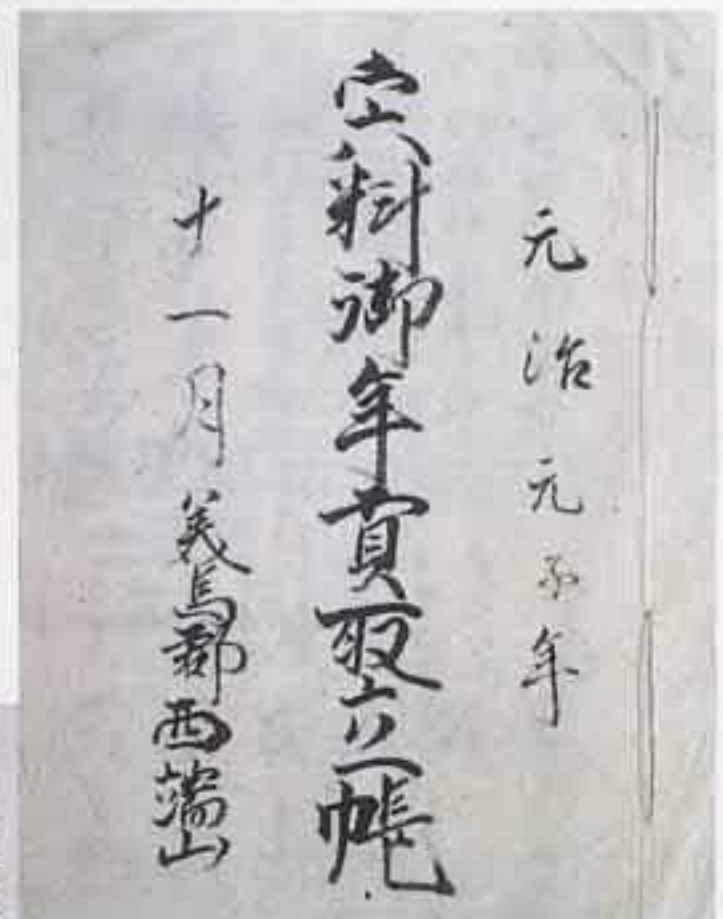 元治元子年
宍料御年貢取立帳
十一月 美馬郡西端山